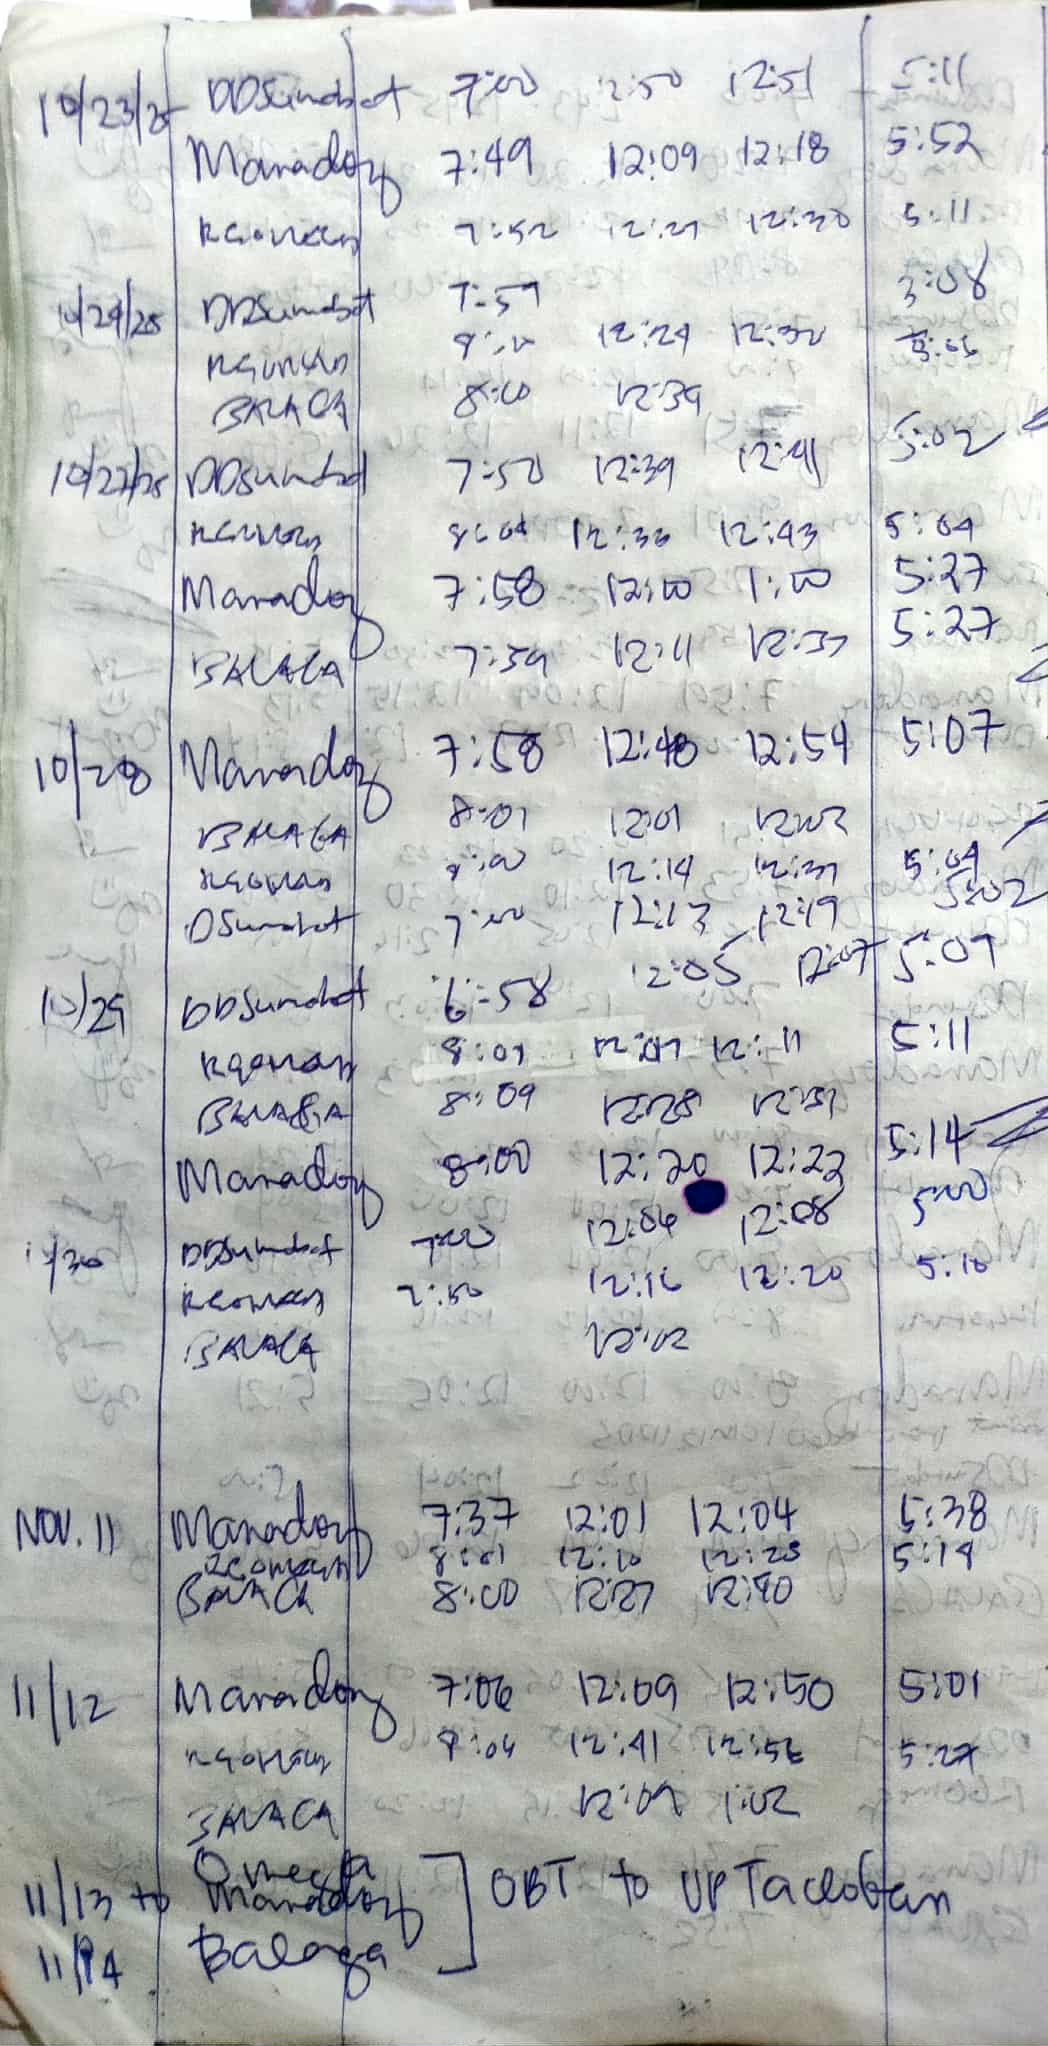 10/23/25 DDSumabat 7:00 12:50 12:51 5:11
Manadoy 7:49 12:09 12:18 5:52
7:52 12:27 12:30 5:11
10/24/25 DDSumabat 7:59 3:08
12:24 12:30
BALAGA 8:00 12:39
10/27/25 DDSumabat 7:50 12:39 12:41 5:02
8:04 12:36 12:43 5:04
Manadoy 7:58 12:00 1:00 5:27
BALAGA 7:59 12:11 12:37 5:27
10/28 Manadoy 7:58 12:48 12:54 5:07
BALAGA 8:01 12:01 12:02
12:14 12:37 5:04
DSumabat 7:00 12:13 12:19 5:02
10/29 DDSumabat 6:58 12:05 12:07 5:09
8:09 12:11 5:11
BALAGA 8:09 12:28 12:31
Manadoy 8:00 12:20 12:22 5:14
10/30 DDSumabat 7:00 12:06 12:08 5:00
7:50 12:16 12:20 5:10
BALAGA 12:02
NOV. 11 Manadoy 7:37 12:01 12:04 5:38
8:01 12:10 12:25 5:19
BALAGA 8:00 12:27 12:40
11/12 Manadoy 7:06 12:09 12:50 5:01
8:04 12:41 12:56 5:27
BALAGA 12:09 1:02
Omega
11/13 to Manadoy OBT to UP Tacloban
11/14 Balaga